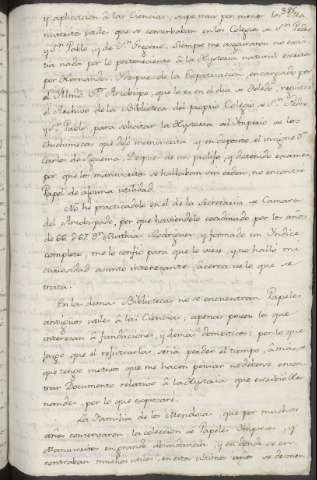 y aplicacion à las Ciencias, supe mui por menor los Ma-
nuscritos utiles que se custodiaban en los Colegios de Sn. Pedro
y Sn. Pablo, y de Sn. Gregorio. Siempre me aseguraron no exis-
tia nada por lo perteneciente à la Hystoria natural escrita
por Hernandez. Despues de la Expatriacion, encargado por
el Illmo. Sr. Arzobispo, que lo es en el dia de Toledo, registré
el Archivo de la Biblioteca del propio Colegio de Sn. Pedro
y Sn. Pablo, para solicitar la Hystoria del Imperio de los
Chichimecas que dejó manuscrita y en deposito el insigne Dn.
Carlos de Siguenza. Despues de un prolijo, y detenido examen
por que los manuscritos se hallaban sin orden, no encontré
Papel de alguna utilidad.
No hé practicadolo en el de la Secretaría de Camara
del Arzobispado, por que haviendole coordinado por los años
de 66 y 67 Dn. Mathias Rodriguez, y formado un Indice
completo, me lo confió para que lo viese, y no halló mi
curiosidad asunto interesante, acerca de lo que se
trata.
En las demas Bibliotecas no se encuentran Papeles
antiguos utiles à las Ciencias, apenas poseen los que
interesan à fundaciones, y demas domesticos: por lo que
juzgo que el registrarlas, sería perder el tiempo, à mas de
que tengo motivos que me hacen pensar no deberse encon-
trar Documento relativo à la Hystoria que escribió Her-
nandez, por lo que expresaré.
La Familia de los Mendozas, que por muchos
años conservaron la coleccion de Papeles Impresos, y
Manuscritos en grande abundancia, y en donde se en-
contraban muchos utiles, en estos ultimos años se deshizo